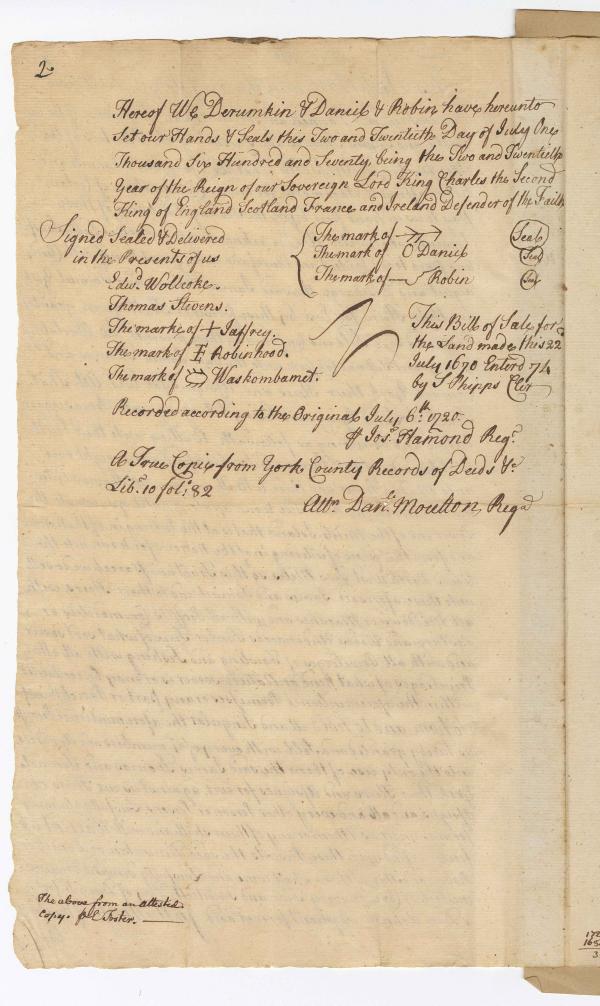 2
Hereof We Derumkin & Daniel & Robin have hereunto
Set our Hands & Seals this Two and Twentieth Day of July One
Thousand Six Hundred and Seventy, being the Two and Twentieth
Year of the Reign of our Sovereign Lord King Charles the Second
King of England Scotland France and Ireland Defender of the Faith
Signed Sealed & Delivered
in the Presents of us
The mark of Seal
The mark of O Daniel Seal
The mark of Robin Seal
Edwd. Wollcoke.
Thomas Stevens.
The marke of + Jaffrey.
The mark of Robinhood.
The mark of Waskombamet.
This Bill of Sale for
the Land made this 22
July 1670 Enterd 74
by S Phipps Cler
Recorded according to the Original July 6th. 1720.
Jos. Hamond Regr.
A True Copie from York County Records of Deeds &c
Libr. 10 fol: 82
Attr Danl. Moulton Regd
The above from an attested
Copy. E Foster.
172
165
3